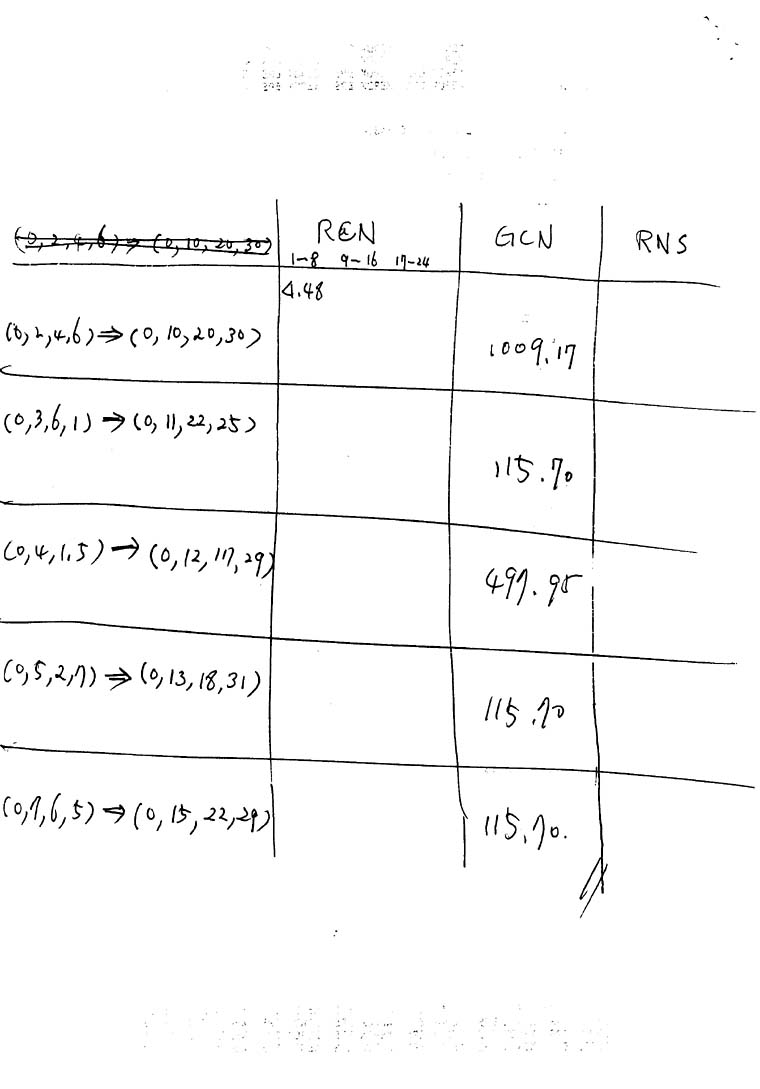 (0,2,4,6) ⇒ (0,10,20,30) REN GCN RNS
1-8 9-16 17-24
4.48
(0,2,4,6) ⇒ (0,10,20,30) 1009.17
(0,3,6,1) → (0,11,22,25) 115.70
(0,4,1,5) → (0,12,17,29) 497.95
(0,5,2,7) ⇒ (0,13,18,31) 115.70
(0,7,6,5) ⇒ (0,15,22,29) 115.70.